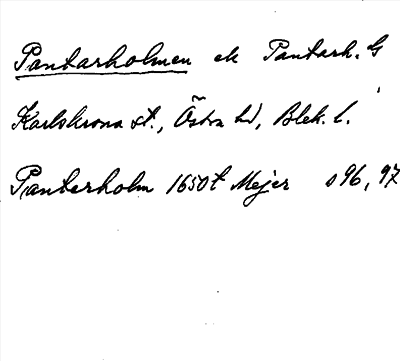 Pantarholmen ek Pantarh. G
Karlskrona st., Östra hd, Blek. l.
Panterholm 1650t Mejer s 96, 97